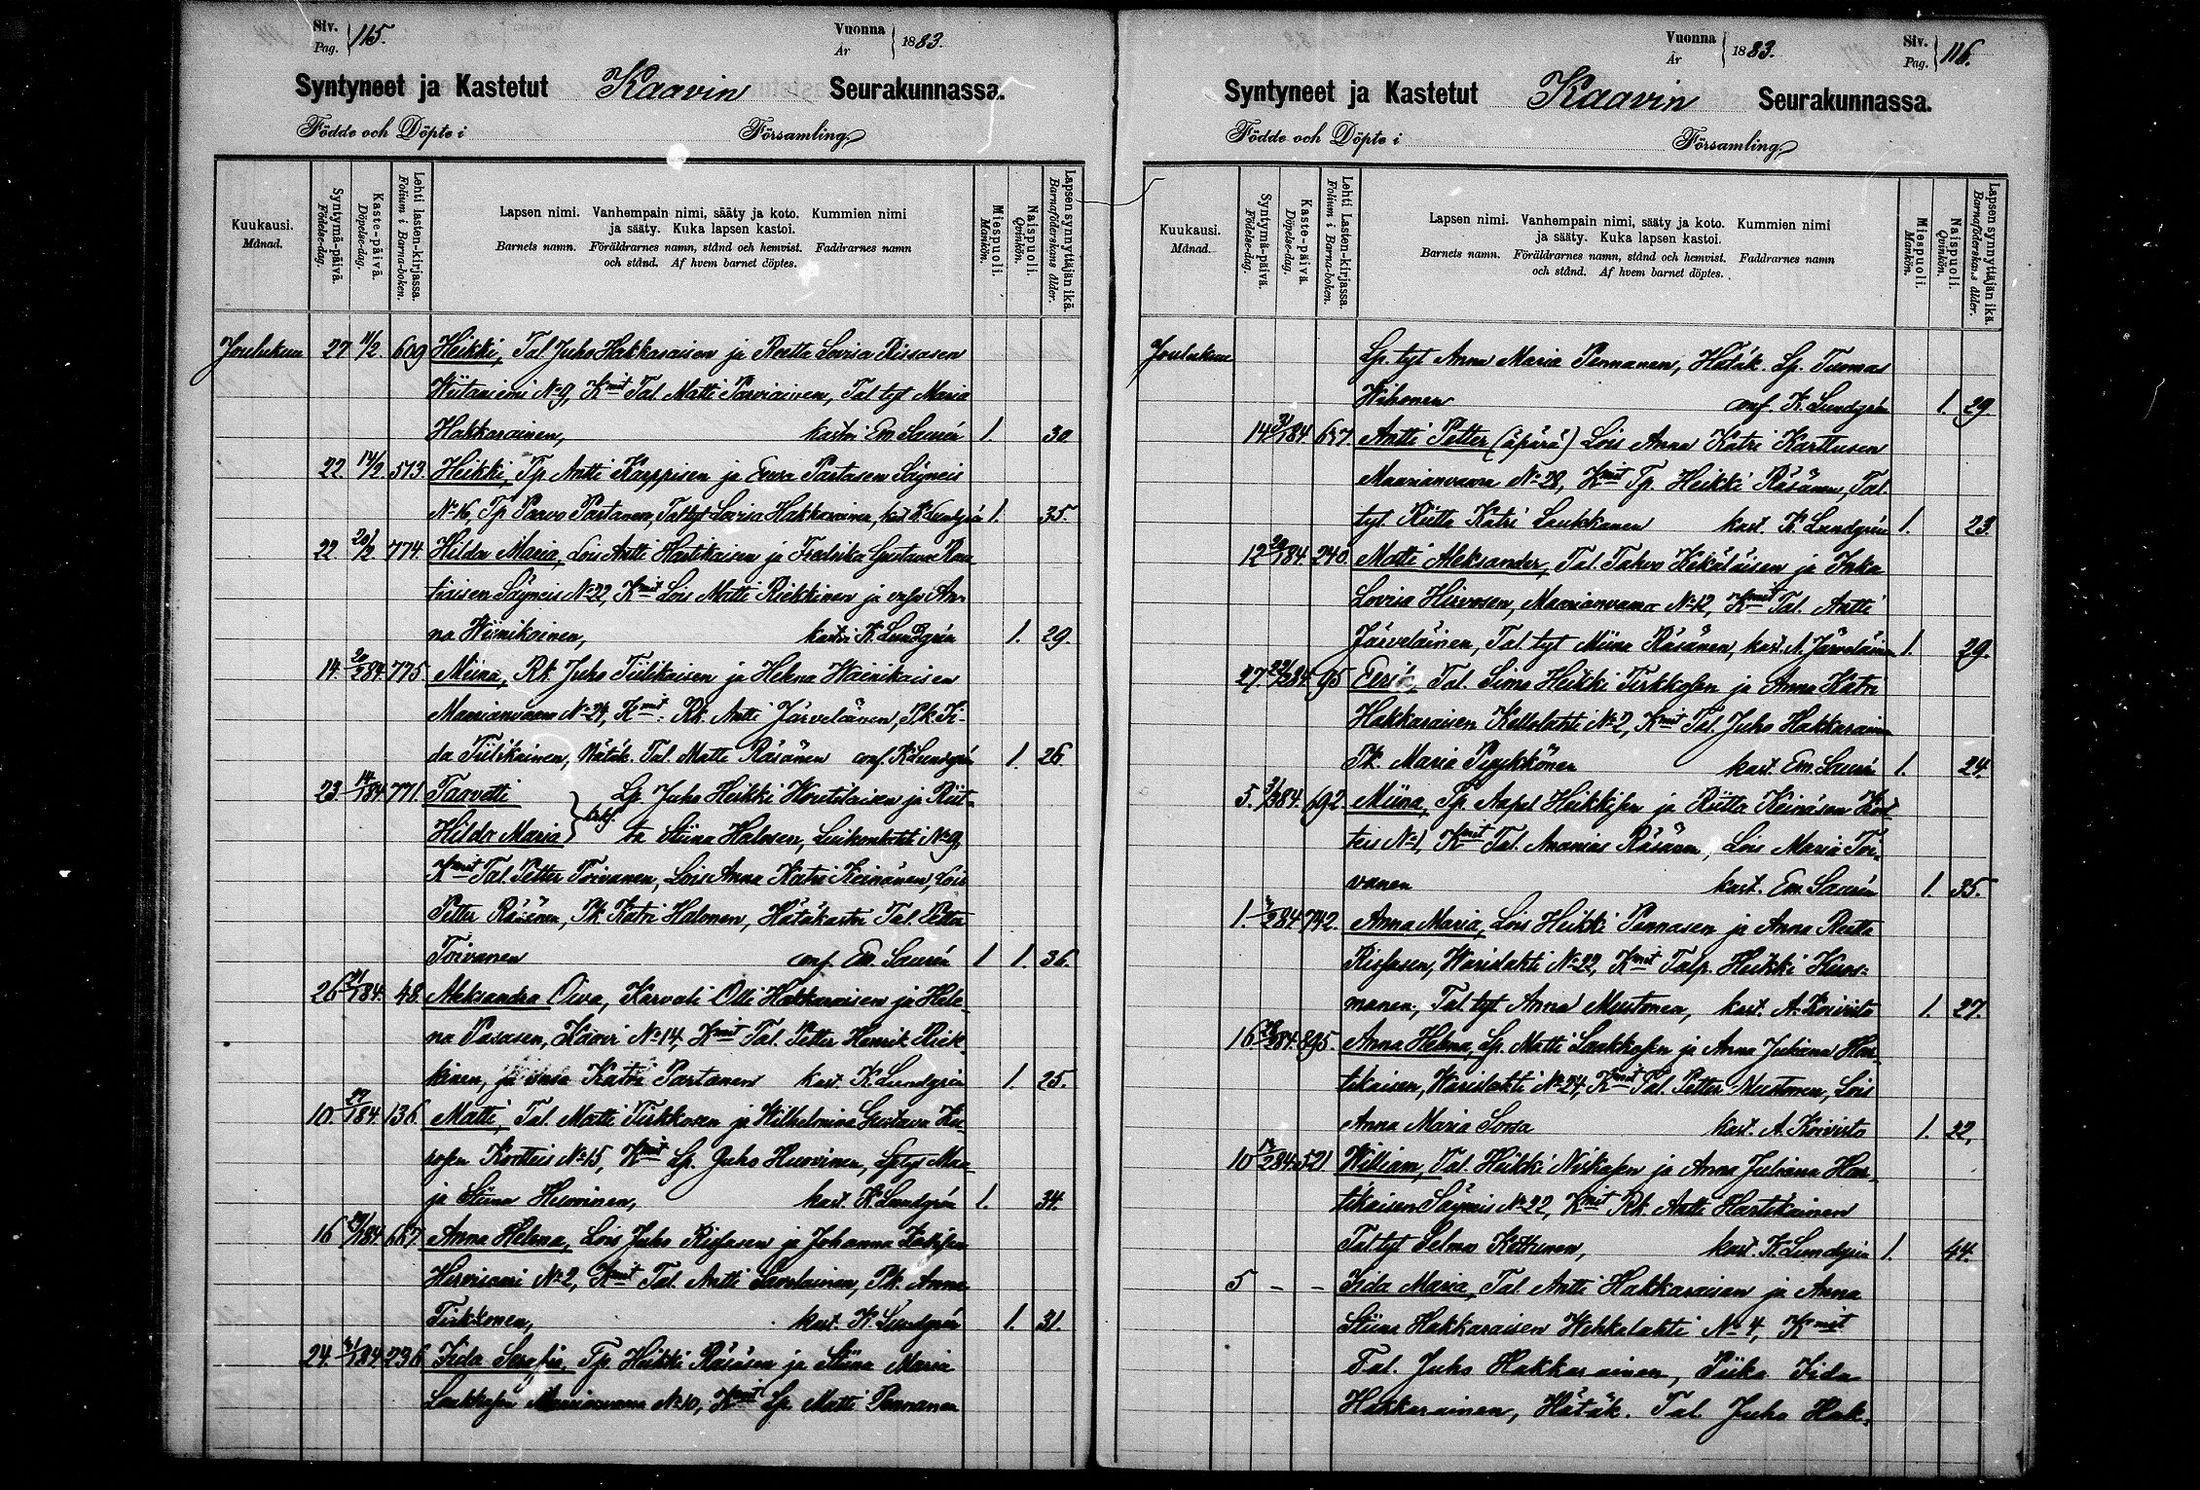 Siv. Pag. 115. Vuonna År 1883.
Syntyneet ja Kastetut Kaavin Seurakunnassa.
Födde och Döpte i Församling.
Kuukausi. Månad.
Syntymä-päivä. Födelse-dag.
Kaste-päivä. Döpelse-dag.
Lehti lasten-kirjassa. Folium i Barna-boken.
Lapsen nimi. Vanhempain nimi, sääty ja koto. Kummien nimi
ja sääty. Kuka lapsen kastoi.
Barnets namn. Föräldrarnes namn, stånd och hemvist. Faddrarnes namn
och stånd. Af hvem barnet döptes.
Miespuoli. Mankön.
Naispuoli. Qvinkön.
Lapsen synnyttäjän ikä. Barnaföderskans ålder.
Joulukuu 27 609 Heikki, Tal Juho Hakkaraisen ja Reetta Lovisa Rissasen
Wiitaniemi No 9, Kmit Tal. Matti Parviainen, Tal tyt Maria
Hakkarainen, kastoi Em. Saurén 1. 30
22. 14/2 513. Heikki, Tp Antti Karppisen ja Eeva Partasen Säyneis
No 16, Tp Paavo Partanen, Tal tyt Lovisa Hakkarainen, kast K. Lundgrén 1. 35.
22 20/2 774. Hilda Maria, Lois Antti Hartikaisen ja Fredrika Gustava Rau-
tiaisen Säyneis No 22, Kmit Lois Matti Riekkinen ja vaho An-
na Wiinikainen, kastoi K. Lundgrén 1. 29.
14. 775. Miina, Rk. Juho Tiilikaisen ja Helena Wainikaisen
Maarianvaara No 24, Kmit. Rk. Antti Järveläinen, Pk. Ii-
da Tiilikainen, Hätäk. Tal. Matti Räsänen conf. K Lundgrén 1. 26.
23. 771. Taavetti Lp. Juho Heikki Koutilaisen ja Riit-
Hilda Maria ta Stiina Halosen, Luikonlahti No 9,
Kmit Tal. Petter Toivanen, Lois Anna Katri Keinänen, Lois
Petter Räsänen, Pk. Katri Halonen, Hätäkastoi Tal. Petter
Toivanen conf. Em. Saurén 1 1. 36.
26 48. Aleksandra Oiva, Karvali Olli Hakkaraisen ja Hele-
na Pasasen, Kaavi No 14, Kmit Tal. Petter Henrik Riek-
kinen, ja Katri Partanen kast. K. Lundgrén 1. 25.
10. 136. Matti, Tal. Matti Tirkkosen ja Wilhelmina Gustava
Kortteis No 15, Kmit Lp. Juho Huovinen, Lp tyt Mar-
ja Stiina Huovinen, kast. K. Lundgrén 1. 34.
16 667. Anna Helena, Lois Juho Rissasen ja Johanna
Hirvisaari No 2, Kmit Tal. Antti Savolainen, Pk. Anna
Tirkkonen, kast. K. Lundgrén 1. 31.
24. 236 Iida Serafia, Tp. Heikki Räsäsen ja Stiina Maria
Laukkasen Maarianvaara No 10, Kmit Lp Matti Pennanen
Vuonna År 1883. Siv. Pag. 116.
Syntyneet ja Kastetut Kaavin Seurakunnassa.
Födde och Döpte i Församling.
Kuukausi. Månad.
Syntymä-päivä. Födelse-dag.
Kaste-päivä. Döpelse-dag.
Lehti Lasten-kirjassa. Folium i Barna-boken.
Lapsen nimi. Vanhempain nimi, sääty ja koto. Kummien nimi
ja sääty. Kuka lapsen kastoi.
Barnets namn. Föräldrarnes namn, stånd och hemvist. Faddrarnes namn
och stånd. Af hvem barnet döptes.
Miespuoli. Mankön.
Naispuoli. Qvinkön.
Lapsen synnyttäjän ikä. Barnaföderskans ålder.
Joulukuu Lp. tyt Anna Maria Pennanen, Hätäk. Lp. Tuomas
Wihonen conf. K. Lundgrén 1. 29.
14 637. Antti Petter (äpärä) Lois Anna Katri Karttusen
Maarianvaara No 28, Kmit Tp. Heikki Räsänen, Tal
tyt. Riitta Katri Laukkanen kast. K. Lundgrén 1. 23.
12 240. Matti Aleksander, Tal. Tahvo Kekäläisen ja Inka
Lovisa Hirvosen, Maarianvaara No 12, Kmit Tal. Antti
Järveläinen, Tal tyt Miina Räsänen, kast. A. Järveläinen 1. 29.
27. 95 Tal. Simo Heikki Tirkkosen ja Anna Katri
Hakkaraisen Kellolahti No 2, Kmit Tal. Juho Hakkarainen
Pk. Maria Pyykkönen kast. Em. Saurén 1. 24.
5. 692. Miina, Lp. Aapel Heikkisen ja Riitta Keinäsen Kort-
teis No 1, Kmit Tal. Ananias Räsänen, Lois Maria Toi-
vanen kast. Em. Saurén 1. 35.
1. 742. Anna Maria, Lois Heikki Pennasen ja Anna Reetta
Rissasen, Warislahti No 22, Kmit Talp. Heikki Kuos-
manen, Tal tyt. Anna Mustonen, kast. A. Koivisto 1. 27.
16 895. Anna Helena, Lp. Matti Laakkosen ja Anna Juliana Har-
tikaisen, Warislahti No 24, Kmit Tal. Petter Mustonen, Lois
Anna Maria Sorsa kast. A. Koivisto 1. 22.
10 521 William, Tal. Heikki Niskasen ja Anna Juliana Har-
tikaisen Säyneis No 22, Kmit Rk. Antti Hartikainen
Tal tyt Selma Kettunen, kast. K. Lundgrén 1. 44.
5 - - Iida Maria, Tal Antti Hakkaraisen ja Anna
Stiina Hakkaraisen Wehkalahti No 4, Kmit
Tal. Juho Hakkarainen, Piika Iida
Hakkarainen, Hätäk. Tal. Juho Hak-